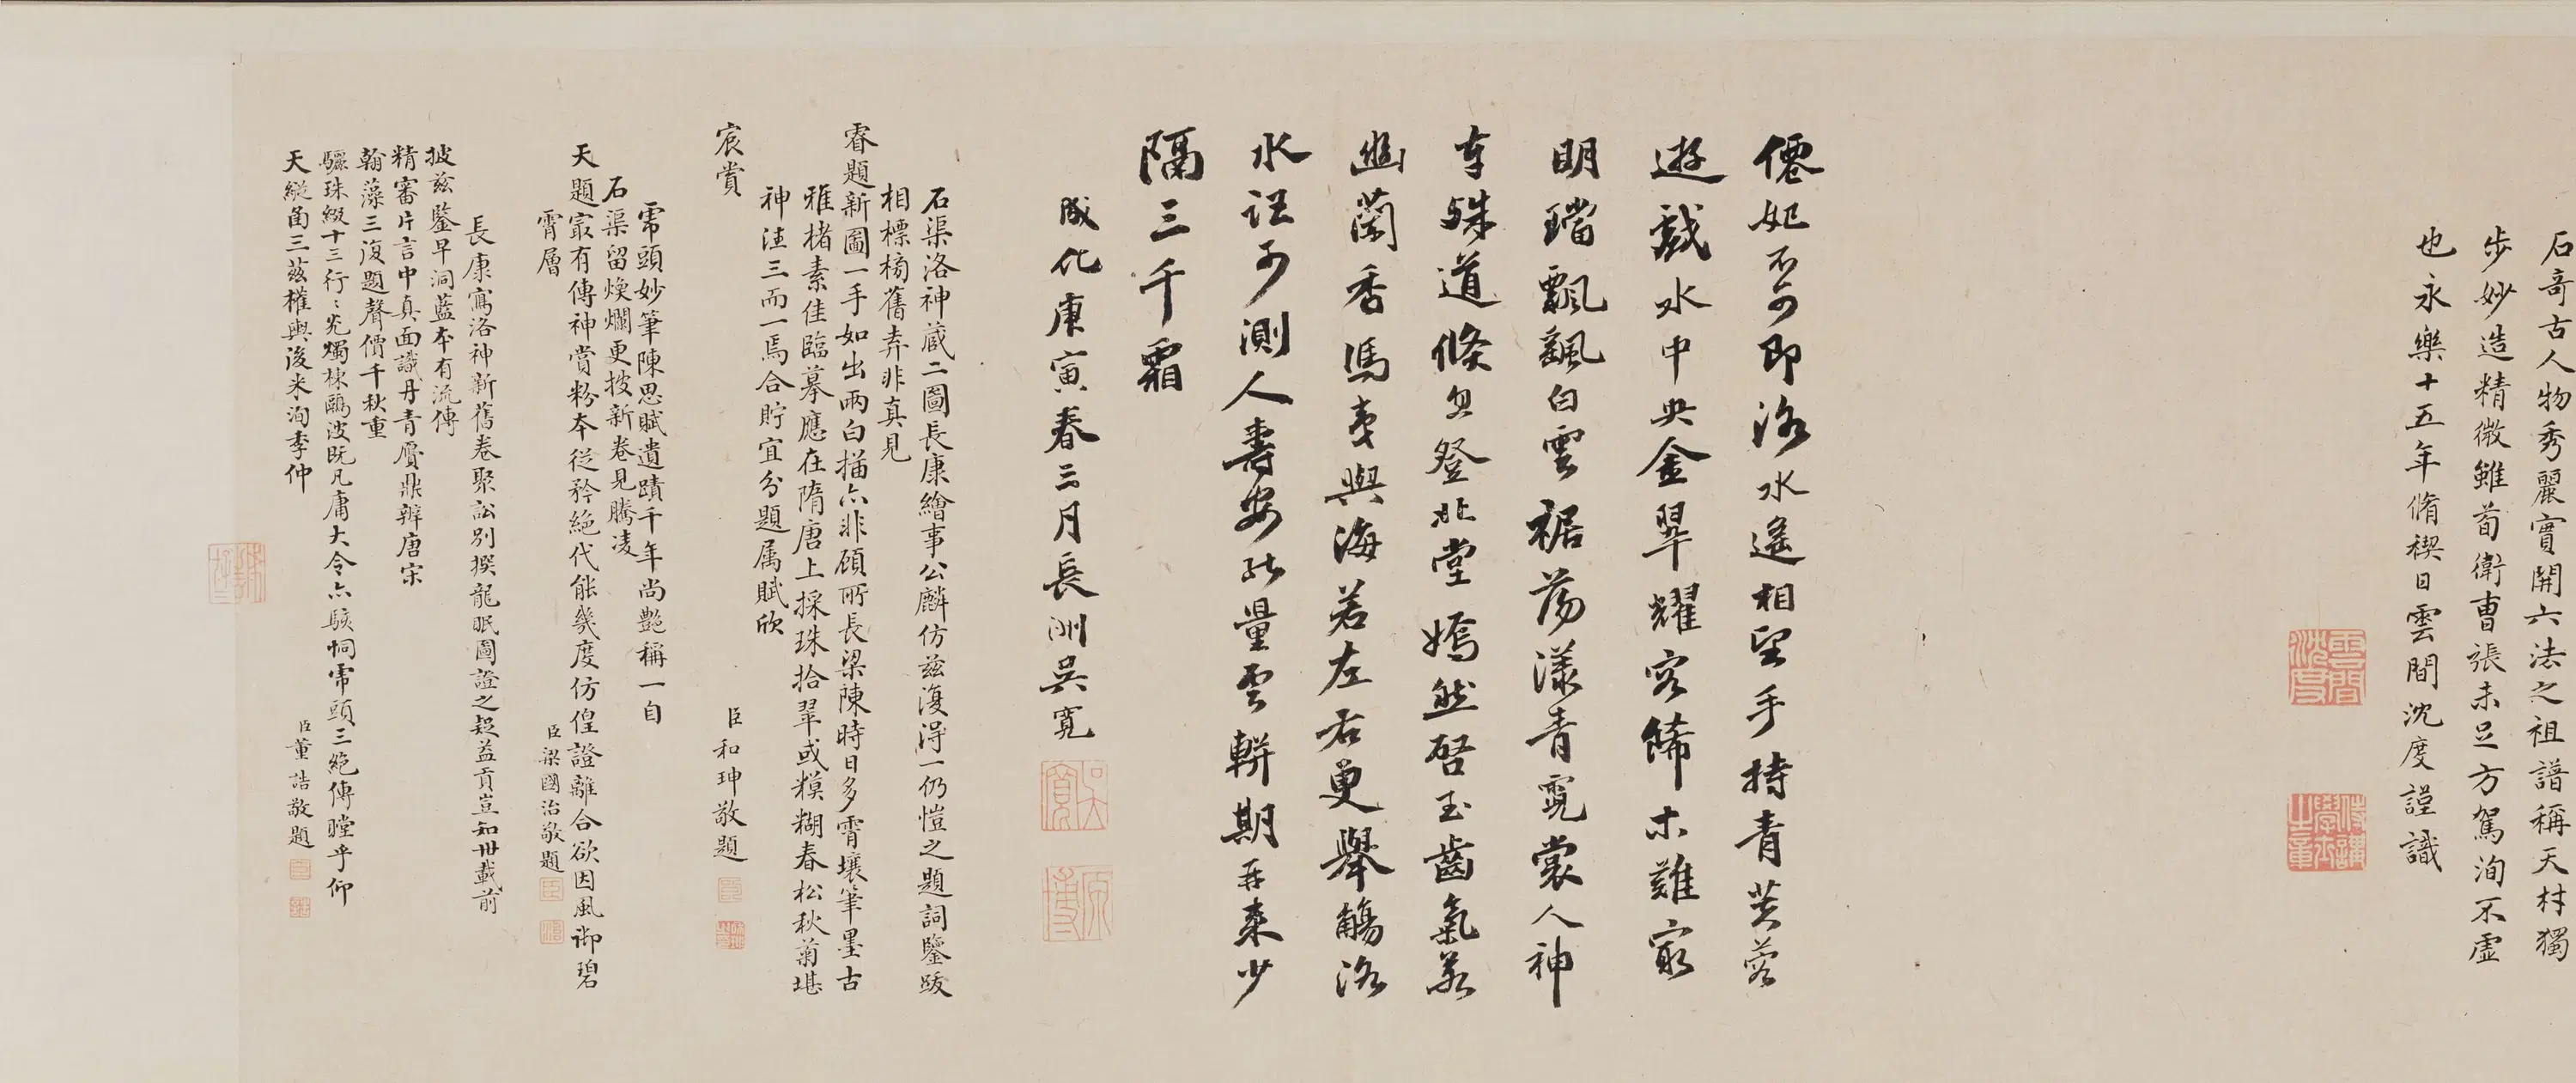 石奇古人物秀麗實開六法之祖譜稱天材獨
步妙造精微雖荀衛曹張未足方駕洵不虛
也永樂十五年脩禊日雲間沈度謹識
雲間沈度
侍講學士之章
僊妃不可即洛水遙相望手持青芙蓉
遊戲水中央金翠耀容飾未難窮
明璫飄颻白雲裾蕩漾青霓裳人神
有殊道倏忽登北堂嫣然啓玉齒氣若
幽蘭香馮夷與海若左右更舉觴洛
水詎可測人壽安能量雲軿期再來少
隔三千霜
成化庚寅春三月長洲吳寬
吳寬
原博
石渠洛神藏二圖長康繪事公麟仿茲復得一仍愷之題詞鑒跋
相標榜舊弆非真見
睿題新圖一手如出兩白描亦非顧所長梁陳時日多霄壤筆墨古
雅楮素佳臨摹應在隋唐上採珠拾翠或糢糊春松秋菊堪
神注三而一焉合貯宜分題属賦欣
宸賞
臣和珅敬題
帋頭妙筆陳思賦遺蹟千年尚艷稱一自
石渠留煥爛更披新卷見騰凌
天題㝡有傳神賞粉本從矜絕代能幾度仿偟證離合欲因風御碧
霄層
臣梁國治敬題
長康寫洛神新舊卷聚訟別撰龍眠圖證之疑益貢豈知卌載前
披茲鑒早洞藍本有流傳
精審片言中真面識丹青贗鼎辨唐宋
翰藻三復題聲價千秋重
驪珠綴十三行行光燭棟鷗波既凡庸大令亦駭恫帋頭三絕傳瞠乎仰
天縱圅三茲權輿後來洵季仲
臣董誥敬題